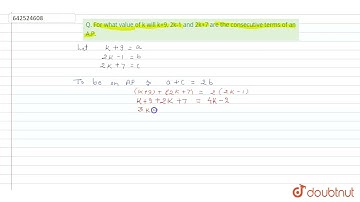 642524608
Q. For what value of k will k+9, 2k-1 and 2k+7 are the consecutive terms of an A.P.
Let k+9 = a
2k-1 = b
2k+7 = c
To be an AP a+c = 2b
(k+9) + (2k+7) = 2(2k-1)
k+9+2k+7 = 4k-2
3k
doubtnut